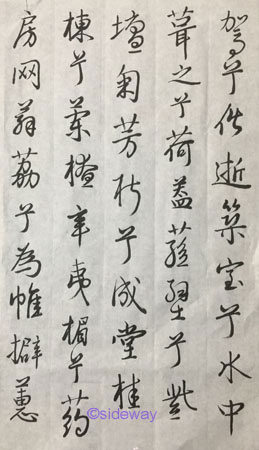 駕兮偕逝築室兮水中
葺之兮荷蓋蓀壁兮紫
壇匊芳椒兮成堂桂
棟兮蘭橑辛夷楣兮葯
房网薜荔兮為帷擗蕙
©sideway